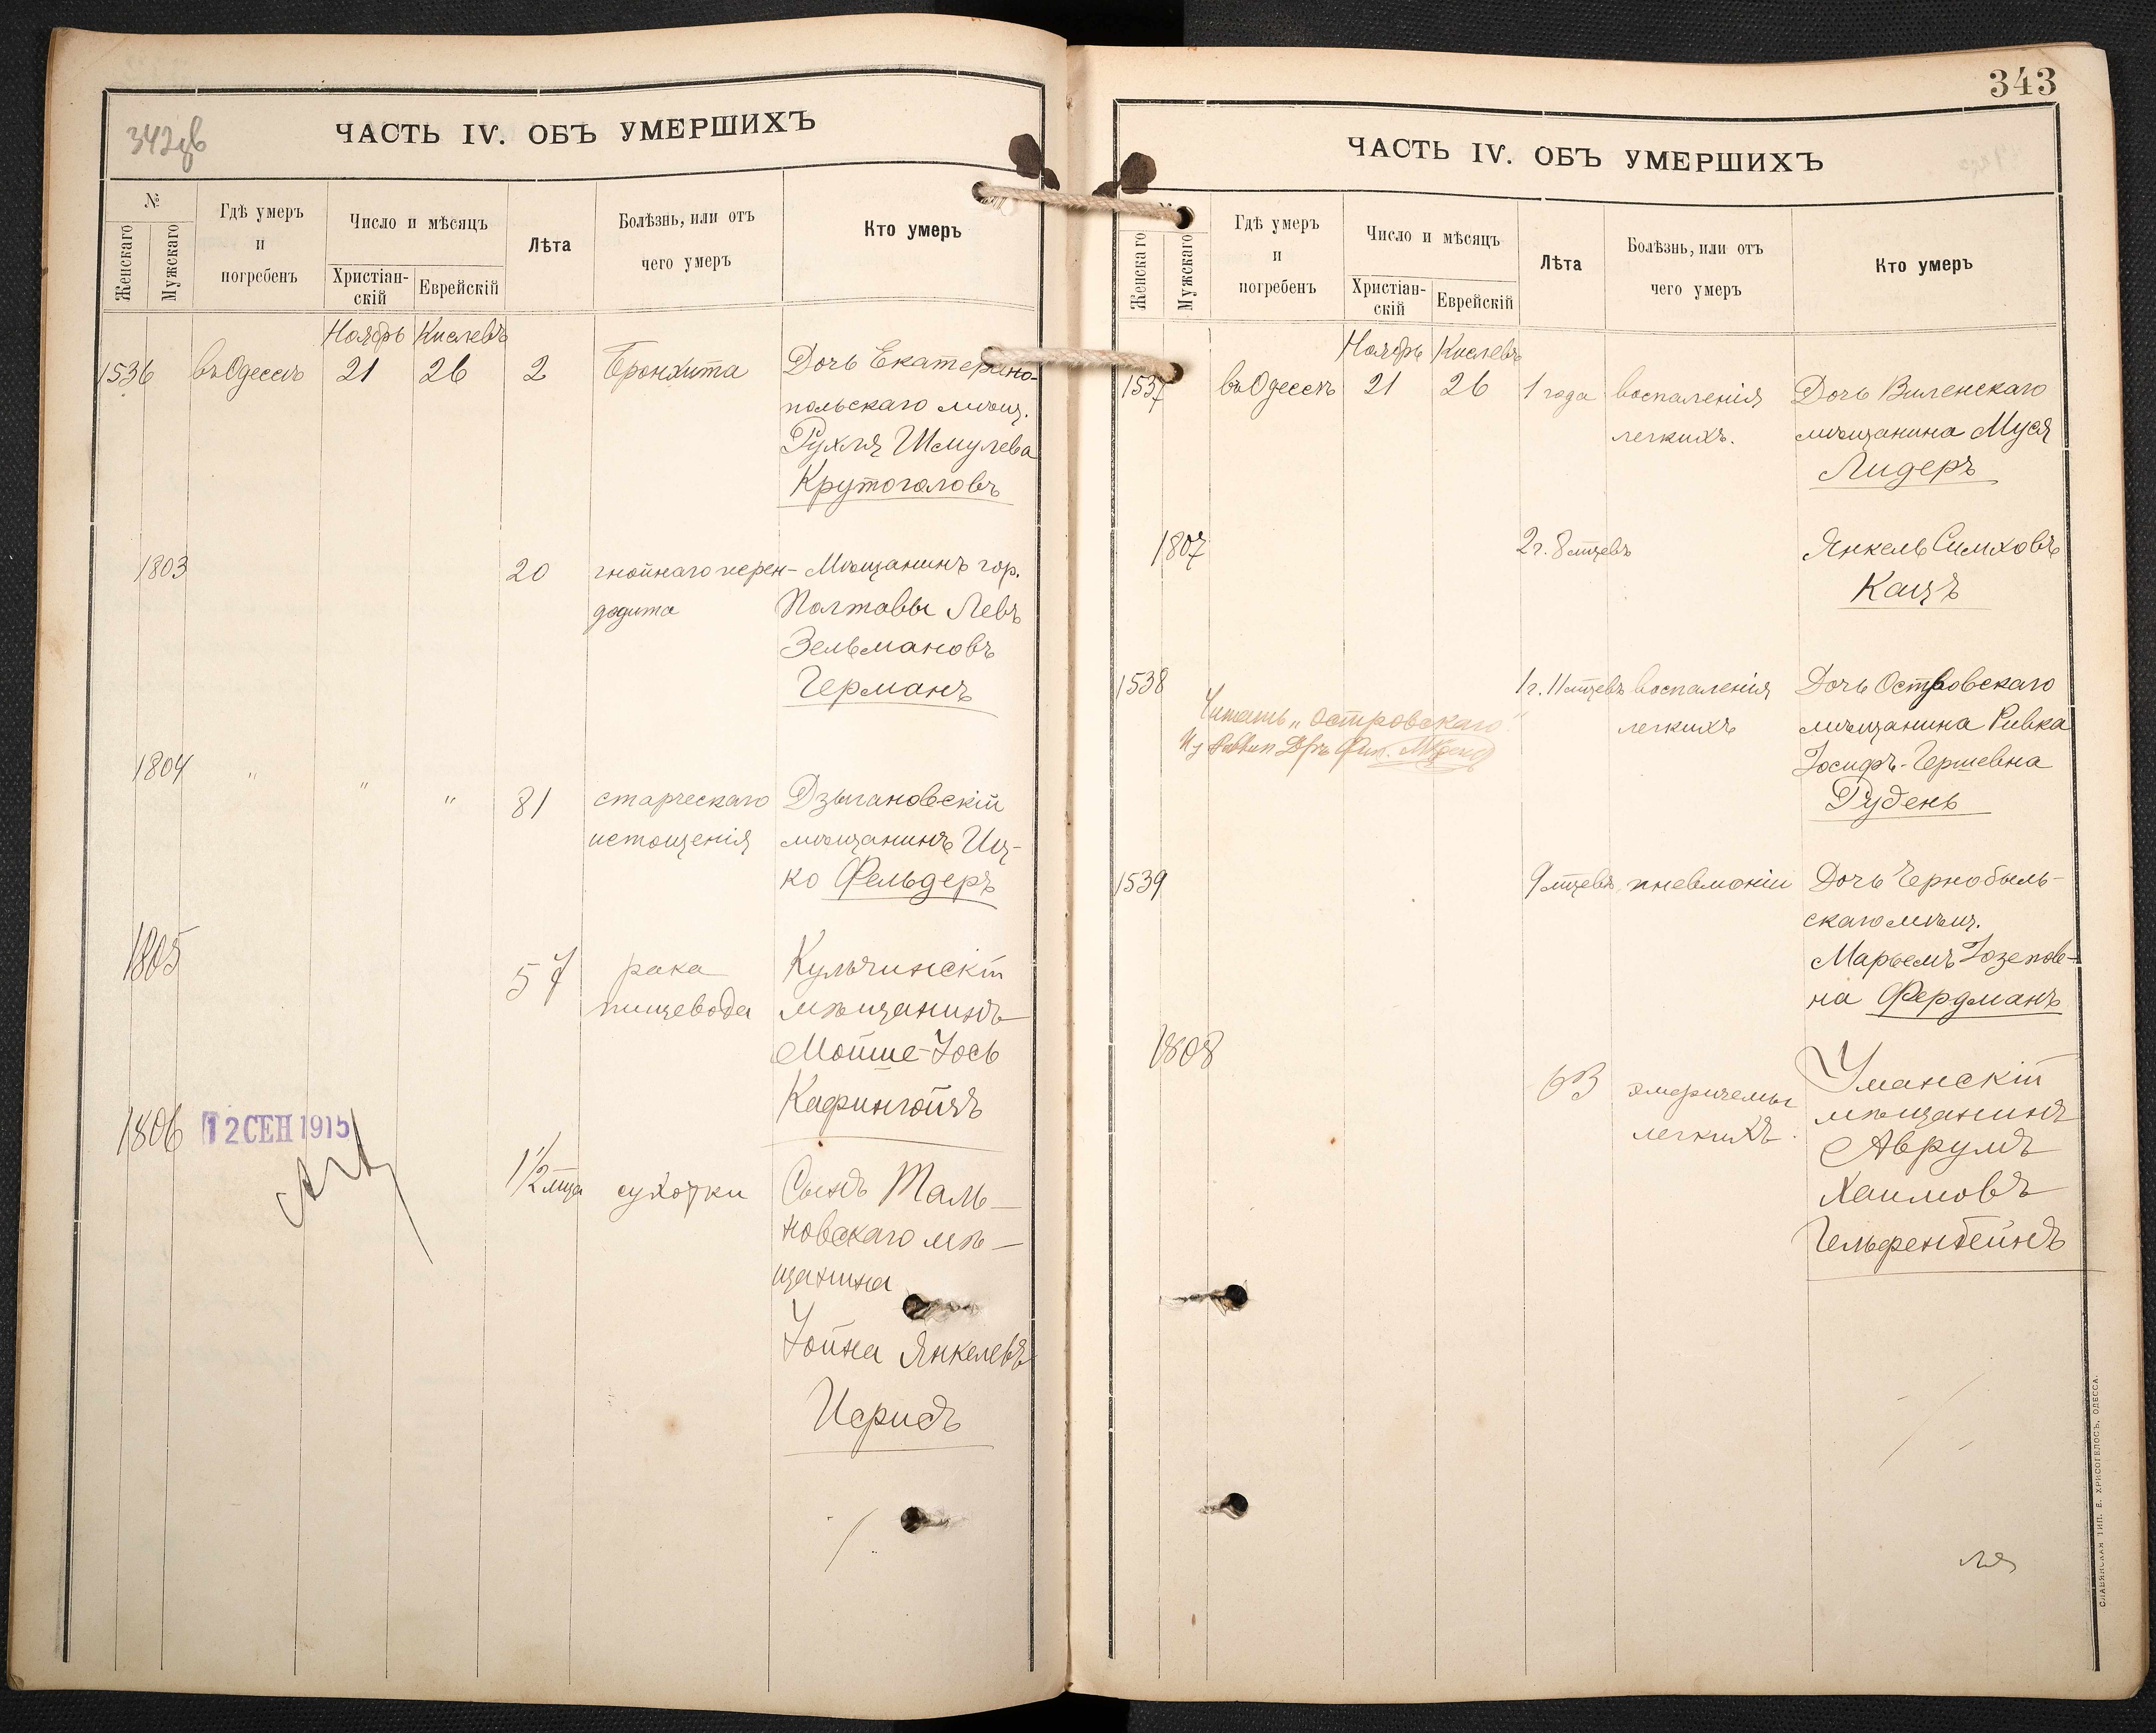 342об
ЧАСТЬ IV. ОБЪ УМЕРШИХЪ
№
Женскаго
Мужскаго
Гдѣ умеръ
и
погребенъ
Число и мѣсяцъ
Христіан-
скій
Еврейскій
Лѣта
Болѣзнь, или отъ
чего умеръ
Кто умеръ
Ноябрь Кислевъ
1536 въ Одессѣ 21 26 2 Бронхита Дочь Екатерино-
польскаго мѣщ.
Рухля Шмулева
Крутоголовъ
1803 20 гнойнаго перен- Мѣщанинъ гор.
Полтавы Левъ
Зельмановъ
Германъ
1804 " " " 81 старческаго Дзыгановскій
истощенія мѣщанинъ Иц-
ко Фельдеръ
1805 57 рака Кульчинскій
пищевода мѣщанинъ
Мойше-Іось
1806 12 СЕН 1915
1 1/2 мѣца сухотки Сынъ Таль-
новскаго мѣ-
щанина
Іойна Янкелевъ
343
ЧАСТЬ IV. ОБЪ УМЕРШИХЪ
Женскаго
Мужскаго
Гдѣ умеръ
и
погребенъ
Число и мѣсяцъ
Христіан-
скій
Еврейскій
Лѣта
Болѣзнь, или отъ
чего умеръ
Кто умеръ
Ноябрь Кислевъ
1537 въ Одессѣ 21 26 1 года воспаленія Дочь Виленскаго
легкихъ. мѣщанина Муся
Лидеръ
1807 2 г. 8 мѣцевъ Янкель Симховъ
Кацъ
1538 1 г. 11 мѣцевъ воспаленія Дочь Островскаго
Читать „Островскаго"
легкихъ мѣщанина Ривка
Іосифъ-Гершевна
Рудень
1539 9 мѣцевъ пневмоніи Дочь Чернобыль-
скаго мѣщ.
Марьемъ Іозепов-
на Фердманъ
1808 63 эмфиземы Уманскій
легкихъ. мѣщанинъ
Аврумъ
Хаимовъ
Гельфенбейнъ
СЛАВЯНСКАЯ ТИП. Е. ХРИСОГЕЛОСЪ, ОДЕССА.